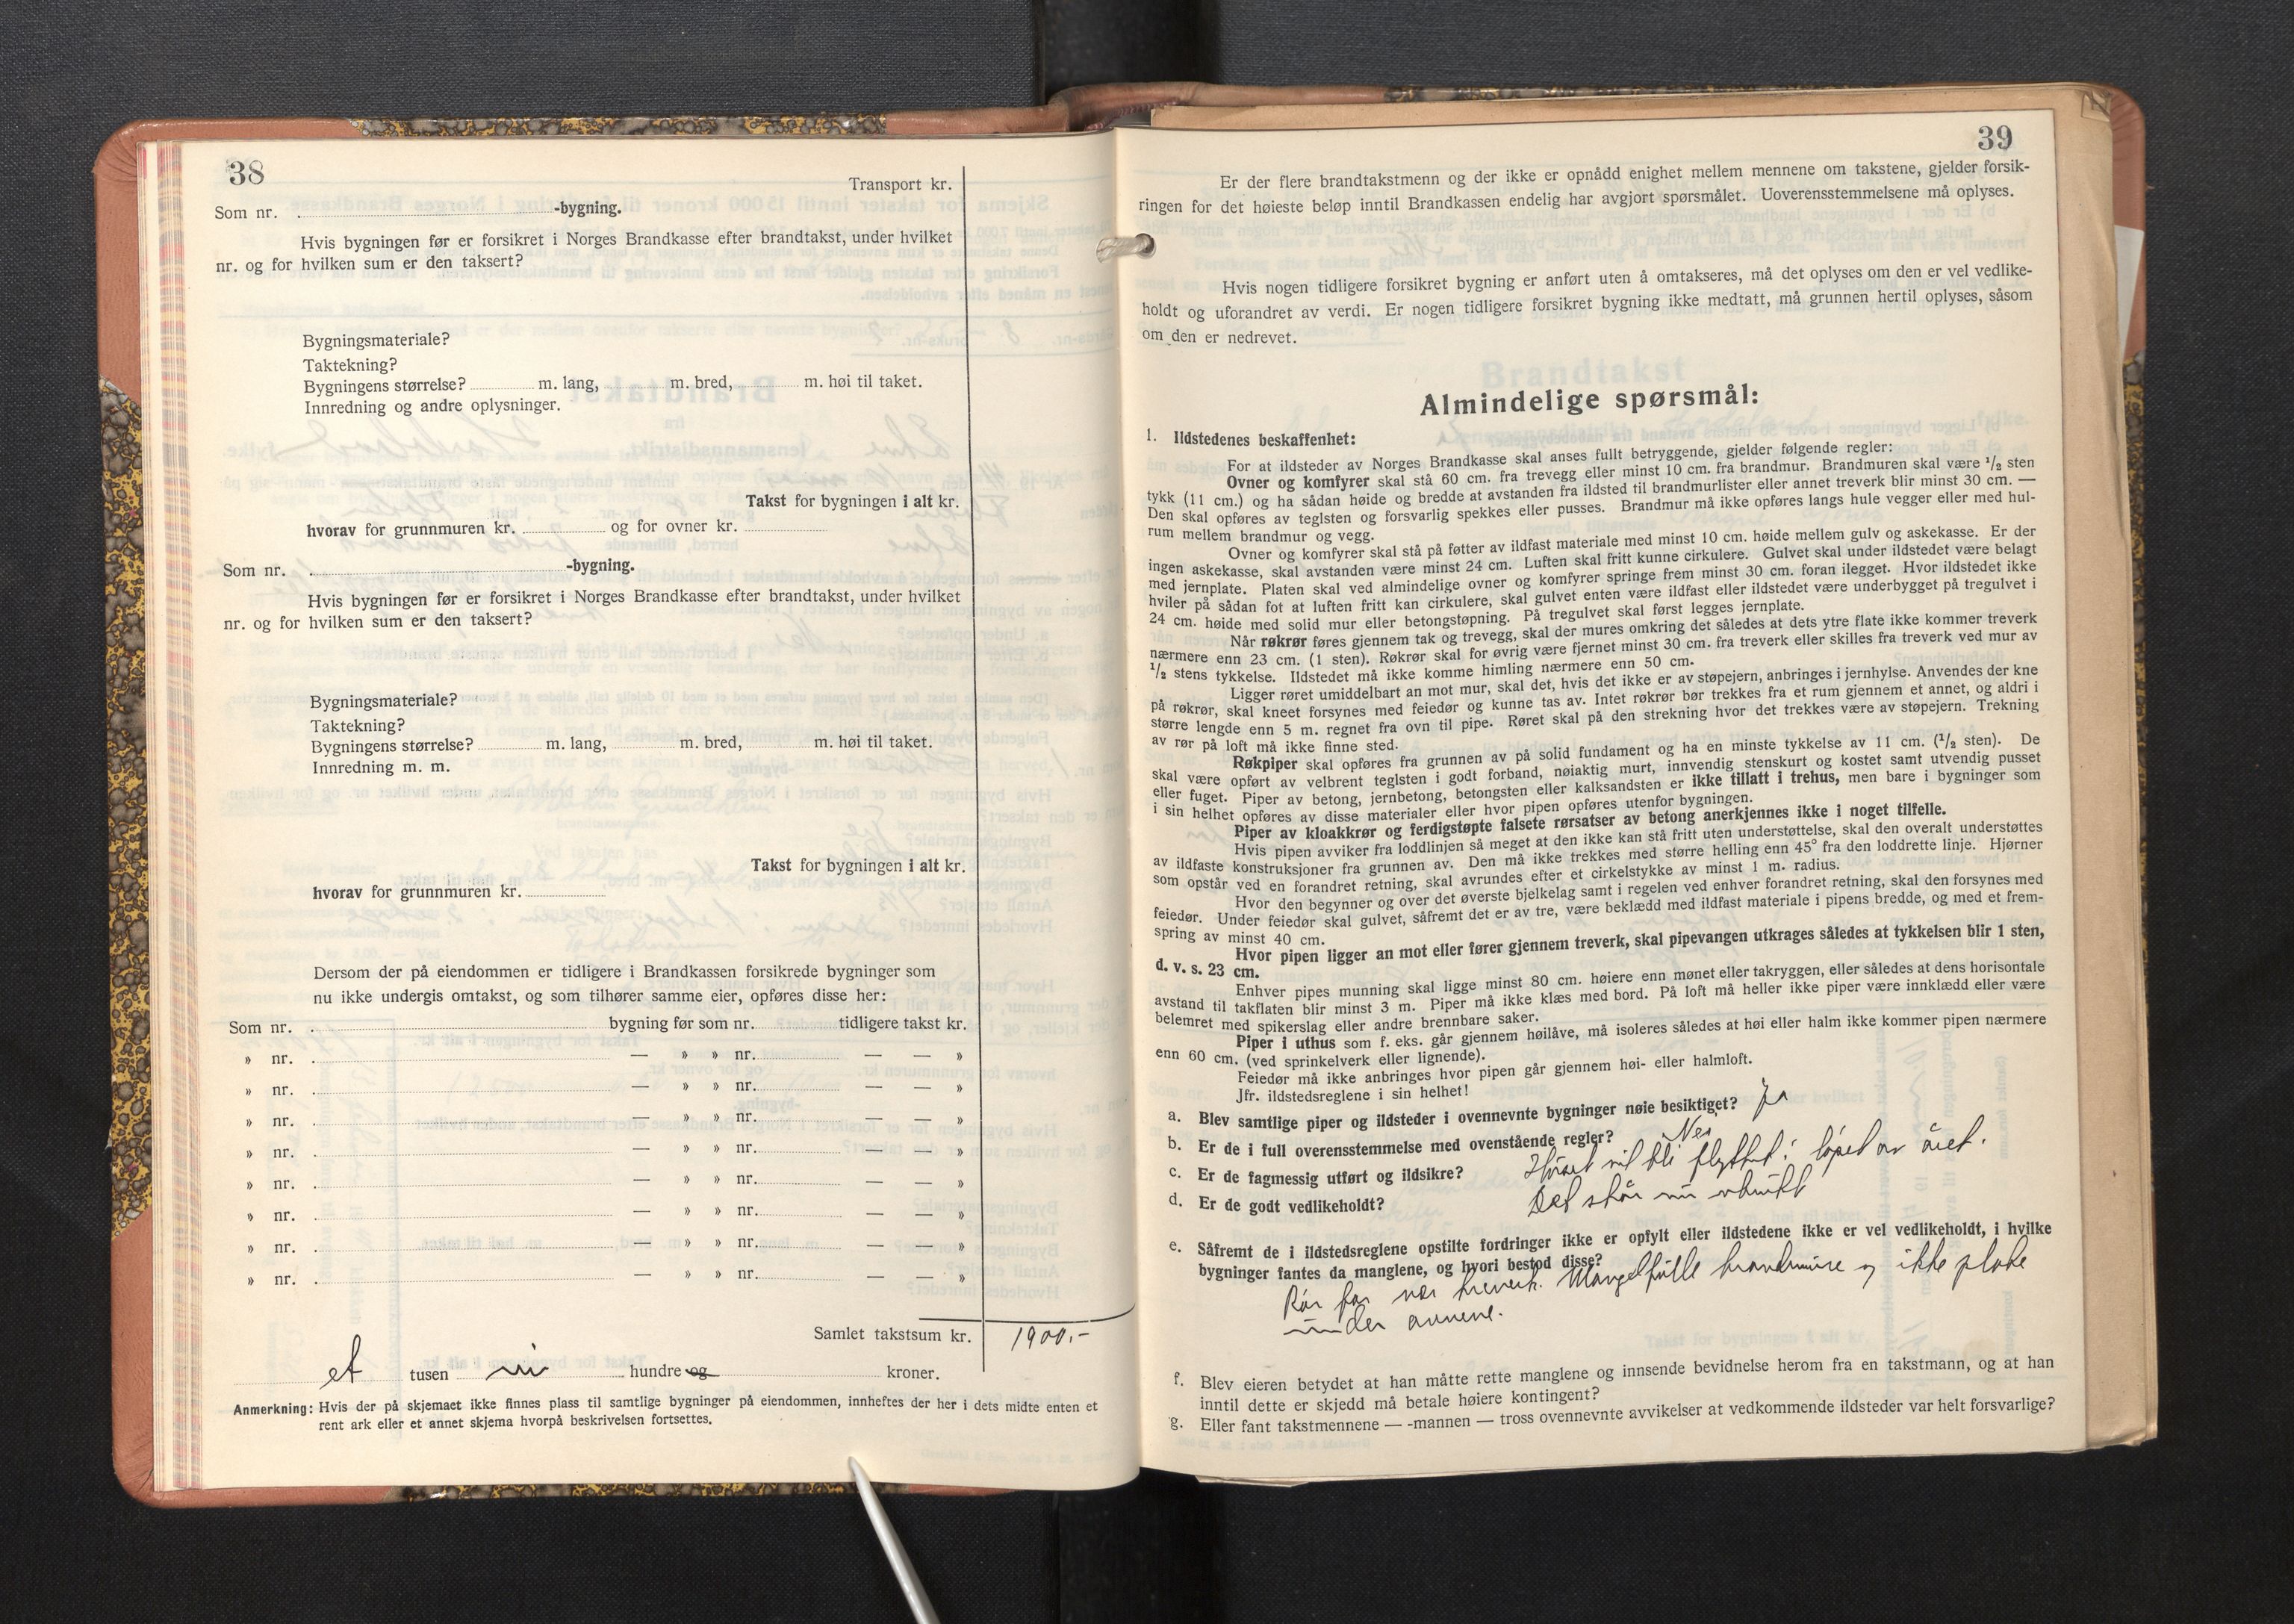 38
Transport kr.
Som nr. -bygning.
Hvis bygningen før er forsikret i Norges Brandkasse efter brandtakst, under hvilket
nr. og for hvilken sum er den taksert?
Bygningsmateriale?
Taktekning?
Bygningens størrelse? m. lang, m. bred, m. høi til taket.
Innredning og andre oplysninger.
Takst for bygningen i alt kr.
hvorav for grunnmuren kr. og for ovner kr.
Som nr. -bygning.
Hvis bygningen før er forsikret i Norges Brandkasse efter brandtakst, under hvilket
nr. og for hvilken sum er den taksert?
Bygningsmateriale?
Taktekning?
Bygningens størrelse? m. lang, m. bred, m. høi til taket.
Innredning m. m.
Takst for bygningen i alt kr.
hvorav for grunnmuren kr.
Dersom der på eiendommen er tidligere i Brandkassen forsikrede bygninger som
nu ikke undergis omtakst, og som tilhører samme eier, opføres disse her:
Som nr. bygning før som nr. tidligere takst kr.
» nr. — » » nr. — — »
» nr. — » » nr. — — »
» nr. — » » nr. — — »
» nr. — » » nr. — — »
» nr. — » » nr. — — »
» nr. — » » nr. — — »
» nr. — » » nr. — — »
» nr. — » » nr. — — »
Samlet takstsum kr. 1900.-
et tusen ni hundre og kroner.
Anmerkning: Hvis der på skjemaet ikke finnes plass til samtlige bygninger på eiendommen, innheftes der her i dets midte enten et
rent ark eller et annet skjema hvorpå beskrivelsen fortsettes.
39
Er der flere brandtakstmenn og der ikke er opnådd enighet mellem mennene om takstene, gjelder forsik-
ringen for det høieste beløp inntil Brandkassen endelig har avgjort spørsmålet. Uoverensstemmelsene må oplyses.
Hvis nogen tidligere forsikret bygning er anført uten å omtakseres, må det oplyses om den er vel vedlike-
holdt og uforandret av verdi. Er nogen tidligere forsikret bygning ikke medtatt, må grunnen hertil oplyses, såsom
om den er nedrevet.
Almindelige spørsmål:
1. Ildstedenes beskaffenhet:
For at ildsteder av Norges Brandkasse skal anses fullt betryggende, gjelder følgende regler:
Ovner og komfyrer skal stå 60 cm. fra trevegg eller minst 10 cm. fra brandmur. Brandmuren skal være 1/2 sten
tykk (11 cm.) og ha sådan høide og bredde at avstanden fra ildsted til brandmurlister eller annet treverk blir minst 30 cm. —
Den skal opføres av teglsten og forsvarlig spekkes eller pusses. Brandmur må ikke opføres langs hule vegger eller med hul-
rum mellem brandmur og vegg.
Ovner og komfyrer skal stå på føtter av ildfast materiale med minst 10 cm. høide mellem gulv og askekasse. Er der
ingen askekasse, skal avstanden være minst 24 cm. Luften skal fritt kunne cirkulere. Gulvet skal under ildstedet være belagt
med jernplate. Platen skal ved almindelige ovner og komfyrer springe frem minst 30 cm. foran ilegget. Hvor ildstedet ikke
hviler på sådan fot at luften fritt kan cirkulere, skal gulvet enten være ildfast eller ildstedet være underbygget på tregulvet i
24 cm. høide med solid mur eller betongstøpning. På tregulvet skal først legges jernplate.
Når røkrør føres gjennem tak og trevegg, skal der mures omkring det således at dets ytre flate ikke kommer treverk
nærmere enn 23 cm. (1 sten). Røkrør skal for øvrig være fjernet minst 30 cm. fra treverk eller skilles fra treverk ved mur av
1/2 stens tykkelse. Ildstedet må ikke komme himling nærmere enn 50 cm.
Ligger røret umiddelbart an mot mur, skal det, hvis det ikke er av støpejern, anbringes i jernhylse. Anvendes der kne
på røkrør, skal kneet forsynes med feiedør og kunne tas av. Intet røkrør bør trekkes fra et rum gjennem et annet, og aldri i
større lengde enn 5 m. regnet fra ovn til pipe. Røret skal på den strekning hvor det trekkes være av støpejern. Trekning
av rør på loft må ikke finne sted.
Røkpiper skal opføres fra grunnen av på solid fundament og ha en minste tykkelse av 11 cm. (1/2 sten). De
skal være opført av velbrent teglsten i godt forband, nøiaktig murt, innvendig stenskurt og kostet samt utvendig pusset
eller fuget. Piper av betong, jernbetong, betongsten eller kalksandsten er ikke tillatt i trehus, men bare i bygninger som
i sin helhet opføres av disse materialer eller hvor pipen opføres utenfor bygningen.
Piper av kloakkrør og ferdigstøpte falsete rørsatser av betong anerkjennes ikke i noget tilfelle.
Hvis pipen avviker fra loddlinjen så meget at den ikke kan stå fritt uten understøttelse, skal den overalt understøttes
av ildfaste konstruksjoner fra grunnen av. Den må ikke trekkes med større helling enn 45° fra den loddrette linje. Hjørner
som opstår ved en forandret retning, skal avrundes efter et cirkelstykke av minst 1 m. radius.
Hvor den begynner og over det øverste bjelkelag samt i regelen ved enhver forandret retning, skal den forsynes med
feiedør. Under feiedør skal gulvet, såfremt det er av tre, være beklædd med ildfast materiale i pipens bredde, og med et frem-
spring av minst 40 cm.
Hvor pipen ligger an mot eller fører gjennem treverk, skal pipevangen utkrages således at tykkelsen blir 1 sten,
d. v. s. 23 cm.
Enhver pipes munning skal ligge minst 80 cm. høiere enn mønet eller takryggen, eller således at dens horisontale
avstand til takflaten blir minst 3 m. Piper må ikke klæs med bord. På loft må heller ikke piper være innklædd eller være
belemret med spikerslag eller andre brennbare saker.
Piper i uthus som f. eks. går gjennem høilåve, må isoleres således at høi eller halm ikke kommer pipen nærmere
enn 60 cm. (ved sprinkelverk eller lignende).
Feiedør må ikke anbringes hvor pipen går gjennem høi- eller halmloft.
Jfr. ildstedsreglene i sin helhet!
a. Blev samtlige piper og ildsteder i ovennevnte bygninger nøie besiktiget? Ja
b. Er de i full overensstemmelse med ovenstående regler? Nei
c. Er de fagmessig utført og ildsikre? Huset vil bli flyttet i løpet av året.
d. Er de godt vedlikeholdt? Det står nu ubrukt
e. Såfremt de i ildstedsreglene opstilte fordringer ikke er opfylt eller ildstedene ikke er vel vedlikeholdt, i hvilke
bygninger fantes da manglene, og hvori bestod disse?
Rør for nær treverk. Mangelfulle brandmure og ikke plate
under ovnene.
f. Blev eieren betydet at han måtte rette manglene og innsende bevidnelse herom fra en takstmann, og at han
inntil dette er skjedd må betale høiere kontingent?
g. Eller fant takstmennene — -mannen — tross ovennevnte avvikelser at vedkommende ildsteder var helt forsvarlige?